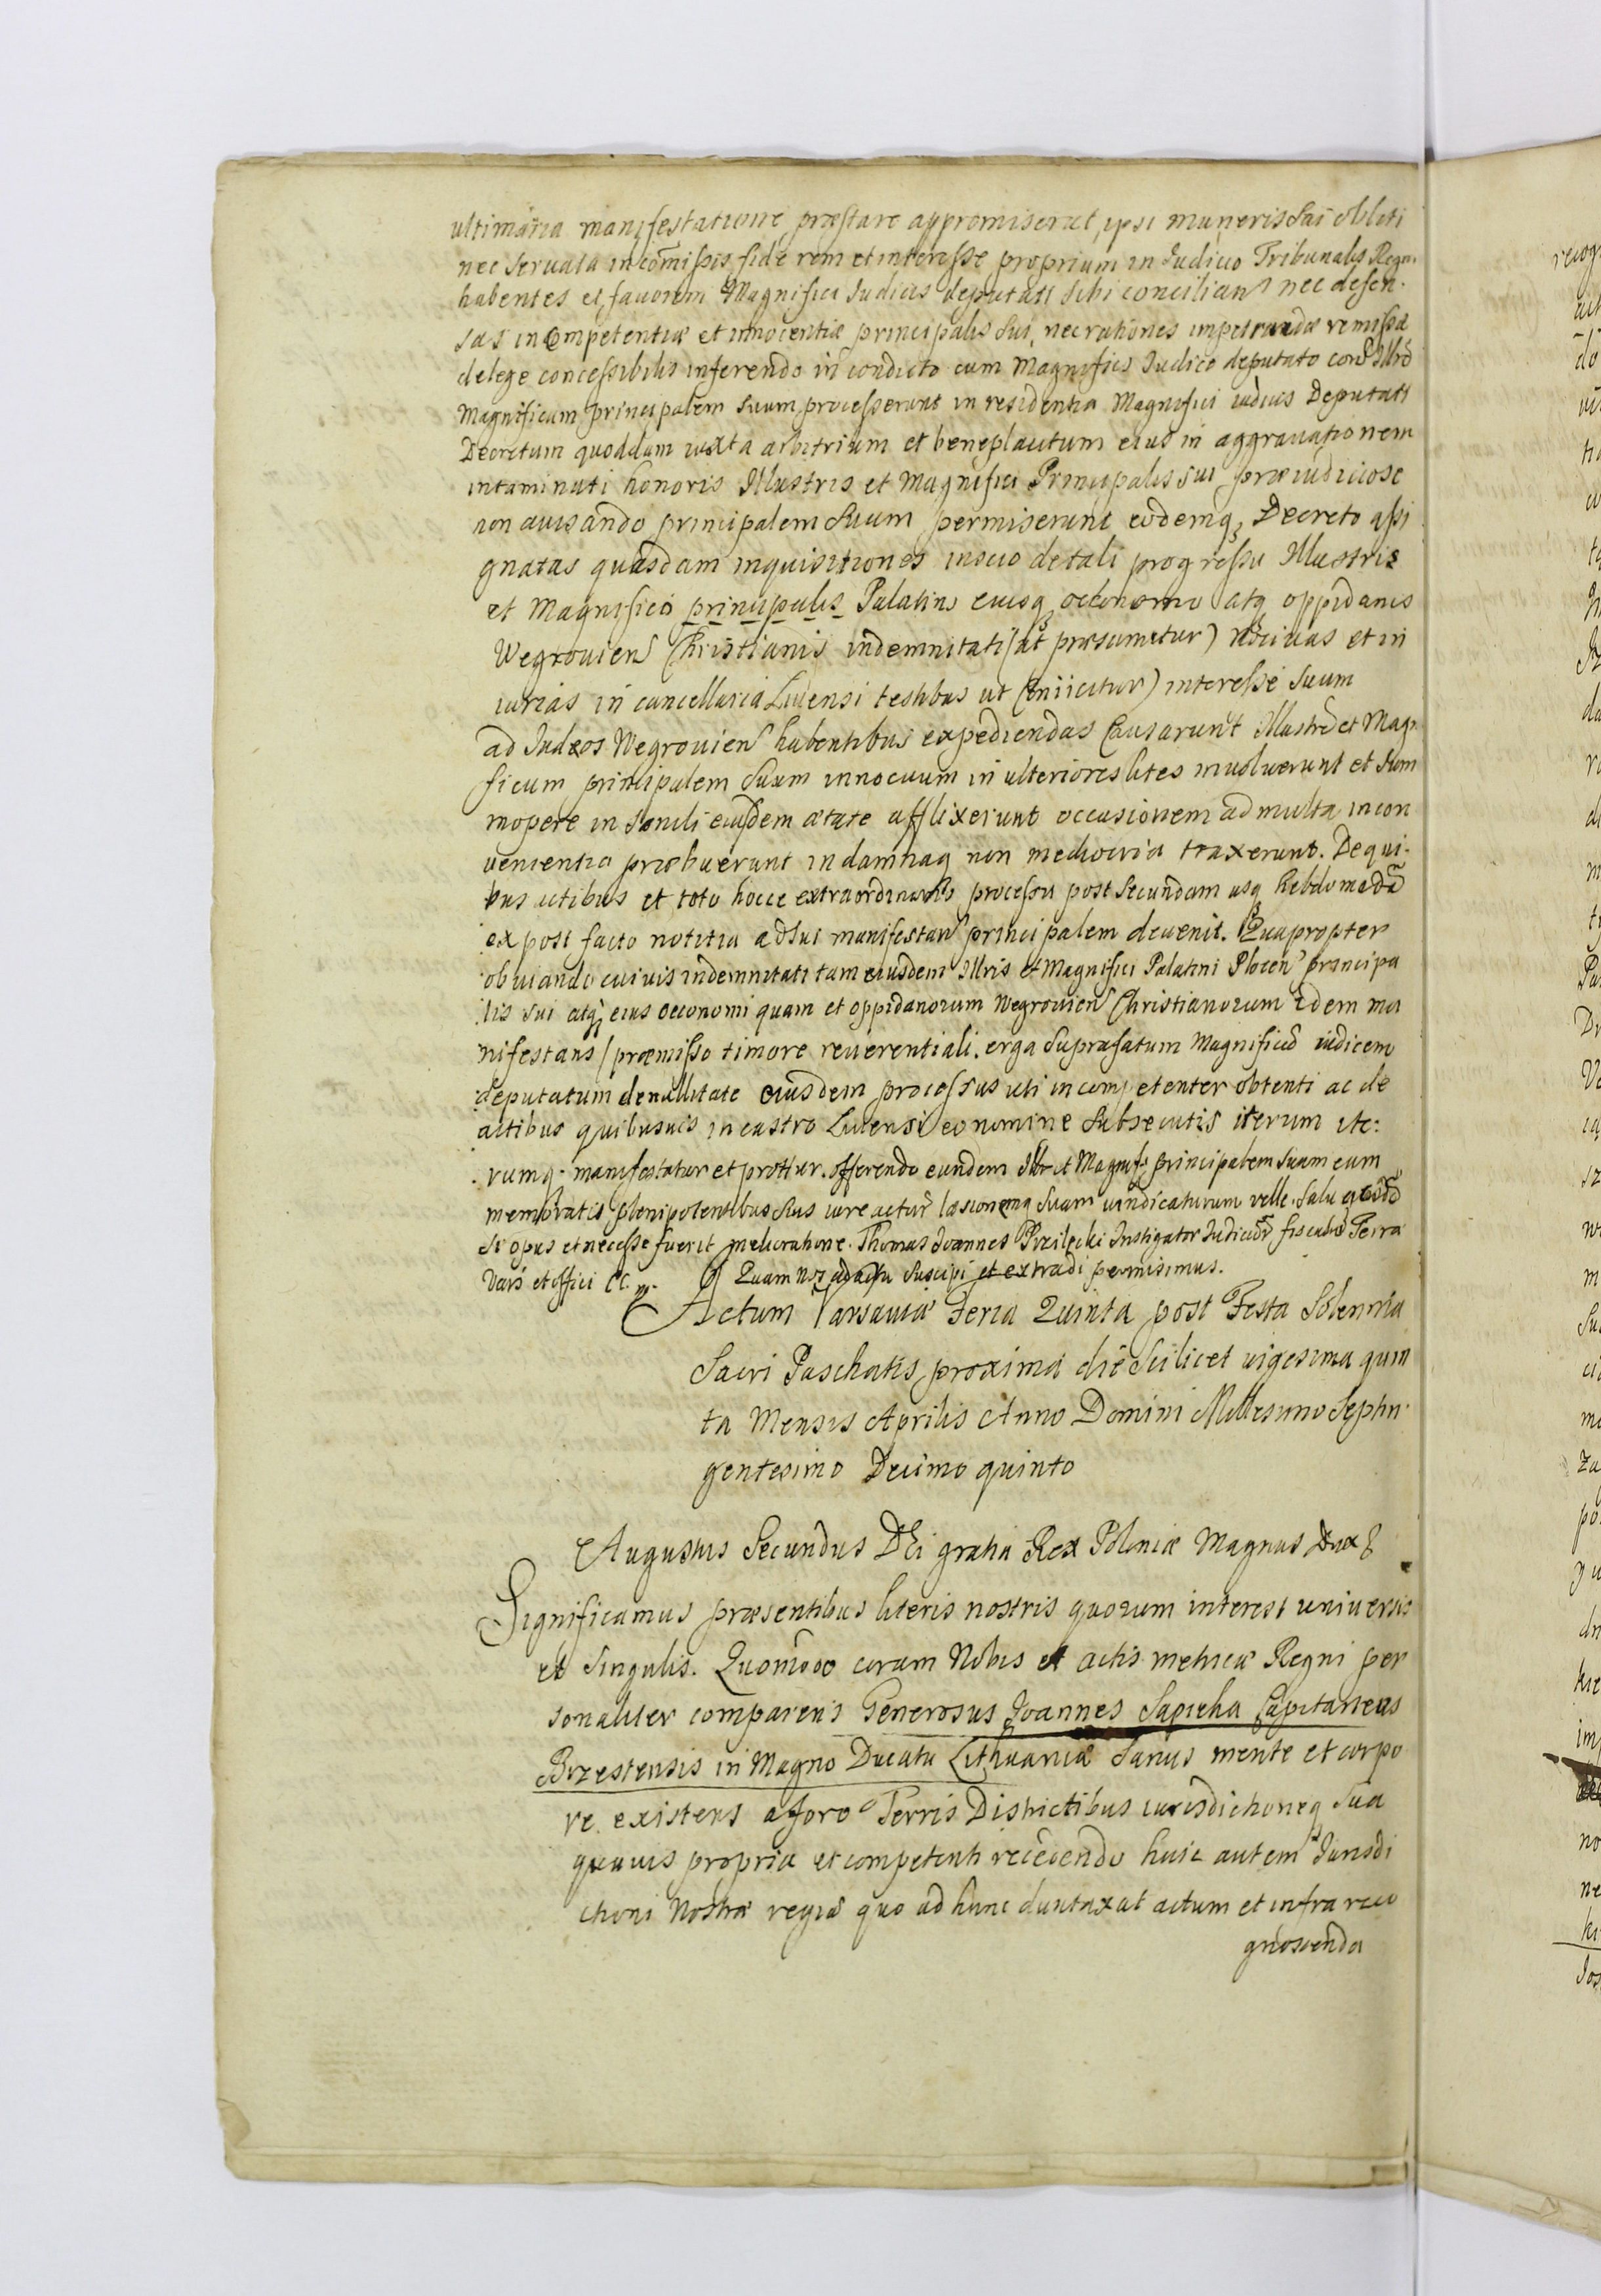 ultimaria manifestatione præstare appromiserat, ipsi muneris sui obliti
nec servata in com̄issis fide rem et interesse proprium in Iudicio Tribunalis Regni
habentes et favorem Magnifici Iudicis deputati sibi concilians nec defen-
sas incompetentiæ et innocentiæ principalis sui, nec rationes impetrandæ remissæ
de lege concessibilis inferendo in condicto cum Magnifico Iudice deputato
Magnificum principalem suum, processerunt in residentia Magnifici iudicis Deputati
Decretum quoddam iuxta arbitrium et beneplacitum eius in aggravationem
intaminati honoris Illustris et Magnifici Principalis sui præiudiciose
non avisando principalem suum permiserunt eodemq. Decreto assi
gnatas quasdam inquisitiones inscio de tali progressu Illustris
et Magnifici principalis Palatini eiusq. oeconomo atq. oppidanis
Wegrovien Christianis indemnitati (ut præsumitur) nocivas et in
iurias in cancellaria Livensi testibus ut (coniicitur) interesse suum
ad Iudæos Wegrovien habentibus expediendas causarunt Illustrem et Magni
ficum principalem suum innocuum in ulteriores lites involverunt et sum
mopere in senili eiusdem ætate afflixerunt occasionem ad multa incon
venientia præbuerunt in damnaq. non mediocria traxerunt. De qui-
bus actibus et toto hocce extraordinario processu post secundam usq. hebdomadā
ex post facto notitia ad sui manifestan principalem devenit. Quapropter
obviando cuivis indemnitati tam eiusdem Illris et Magnifici Palatini Plocen principa
lis sui atq. eius oeconomi quam et oppidanorum Wegrovien Christianorum Idem ma
nifestans (præmisso timore reverentiali erga suprafatum Magnificū iudicem
deputatum de nullitate eiusdem processus uti incompetenter obtenti ac de
actibus quibusvis in castro Livensi eo nomine subsecutis iterum ite:
rumq. manifestatur et prottur. offerendo eundem Illr et Magnif. principalem suum cum
memoratis plenipotentibus suis iure acturū læsionemq. suam vindicaturum velle. Salva
si opus et necesse fuerit melioratione. Thomas Joannes Przilęcki Instigator Iudicior fiscalis Terræ
Vars et offici CC. mp. Quam nos ad acta suscipi et extradi permisimus.
Actum Varsaviæ Feria Quinta post Festa Solennia
Sacri Paschatis proxima die scilicet vigesima quin
ta Mensis Aprilis Anno Domini Millesimo Septin-
gentesimo Decimo quinto
Augustus Secundus DEi gratia Rex Poloniæ Magnus Dux &
Significamus præsentibus literis nostris quorum interest universis
et singulis. Quomodo coram Nobis et actis metricæ Regni per
sonaliter comparens Generosus Joannes Sapieha Capitaneus
Brzestensis in Magno Ducatu Lithuaniæ sanus mente et corpo
re existens a foro Terris Districtibus iurisdictioneq. sua
quavis propria et competenti recedendo huic autem Jurisdi
ctioni Nostræ regiæ quo ad hunc duntaxat actum et infra reco
gnoscenda